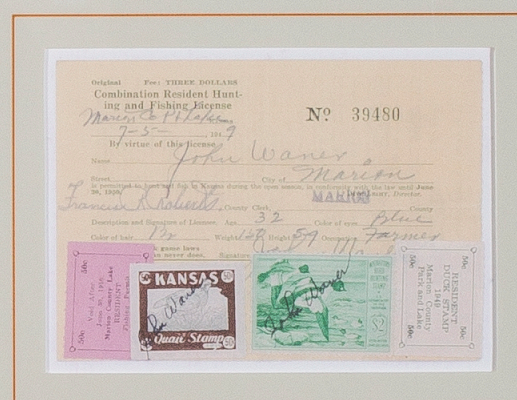 Original Fee: THREE DOLLARS
Combination Resident Hunt-
ing and Fishing License
Marion Co Pk & Lake
Nº 39480
7-5- 1949
By virtue of this license
Name John Waner
Street City of Marion
is permitted to hunt and fish in Kansas during the open season, in conformity with the law until June
30, 1950. MARION Director.
Francis R. Roberts, County Clerk, County
Description and Signature of Licensee. Age, 32 Color of eyes Blue
Color of hair Br Weight Height 5-9 Occupation Farmer
game laws
Signature
50c 50c
Void After
Marion County Lake
RESIDENT
Fishing Permit
50c 50c
50¢ KANSAS 50¢
John Waner
50¢ Quail Stamp 50¢
MIGRATORY
BIRD HUNTING
STAMP
$2
John Waner
50c 50c
RESIDENT
DUCK STAMP
1949
Marion County
Park and Lake
50c 50c